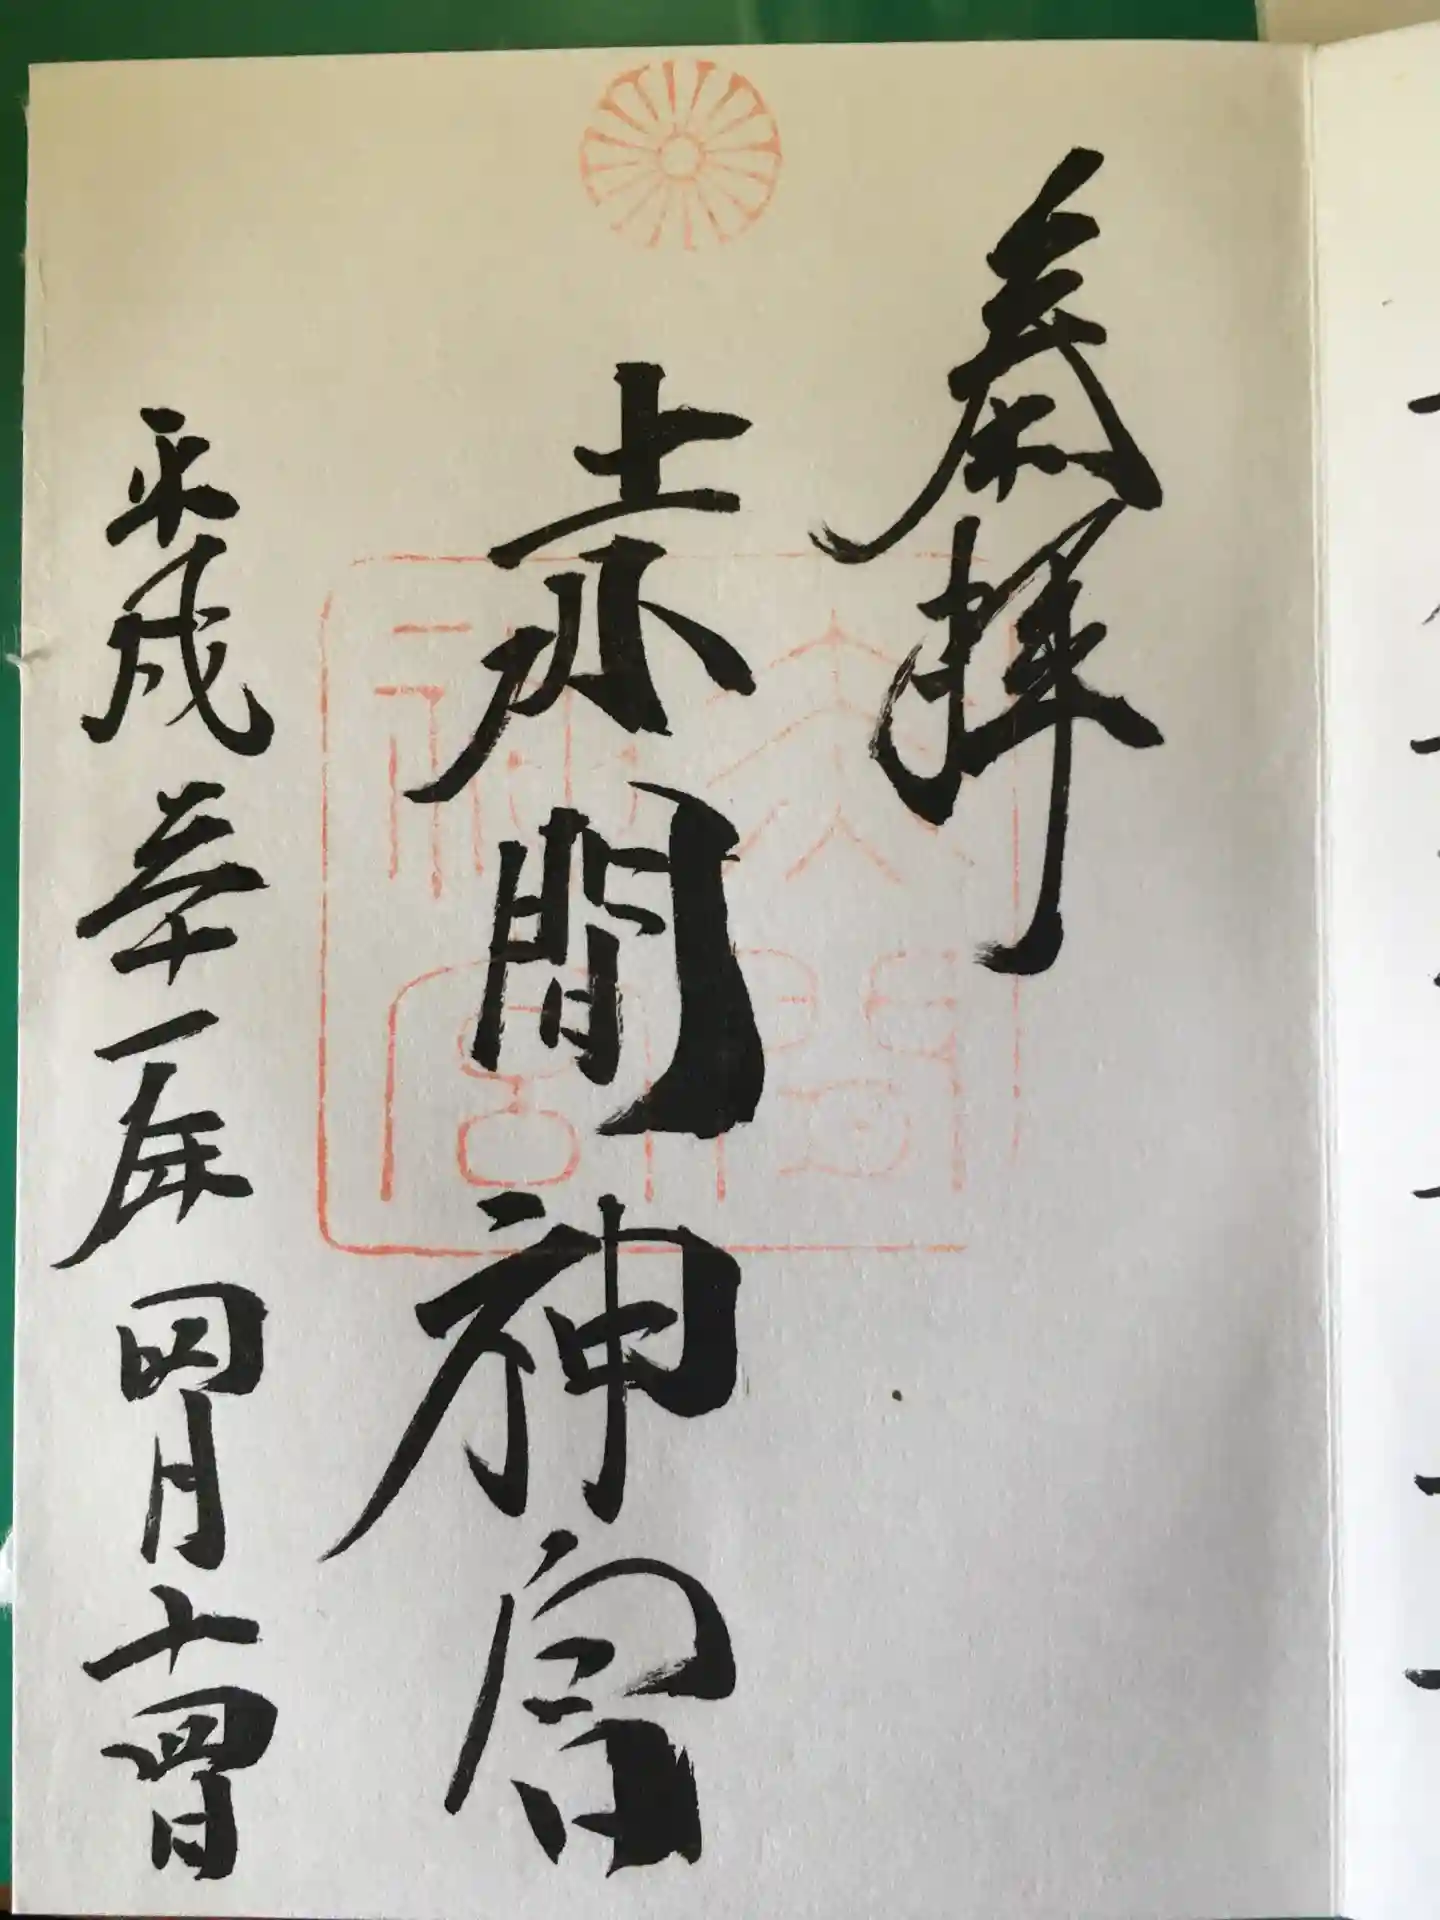 奉拝
赤間神宮
平成三十一年四月十四日
赤間神宮